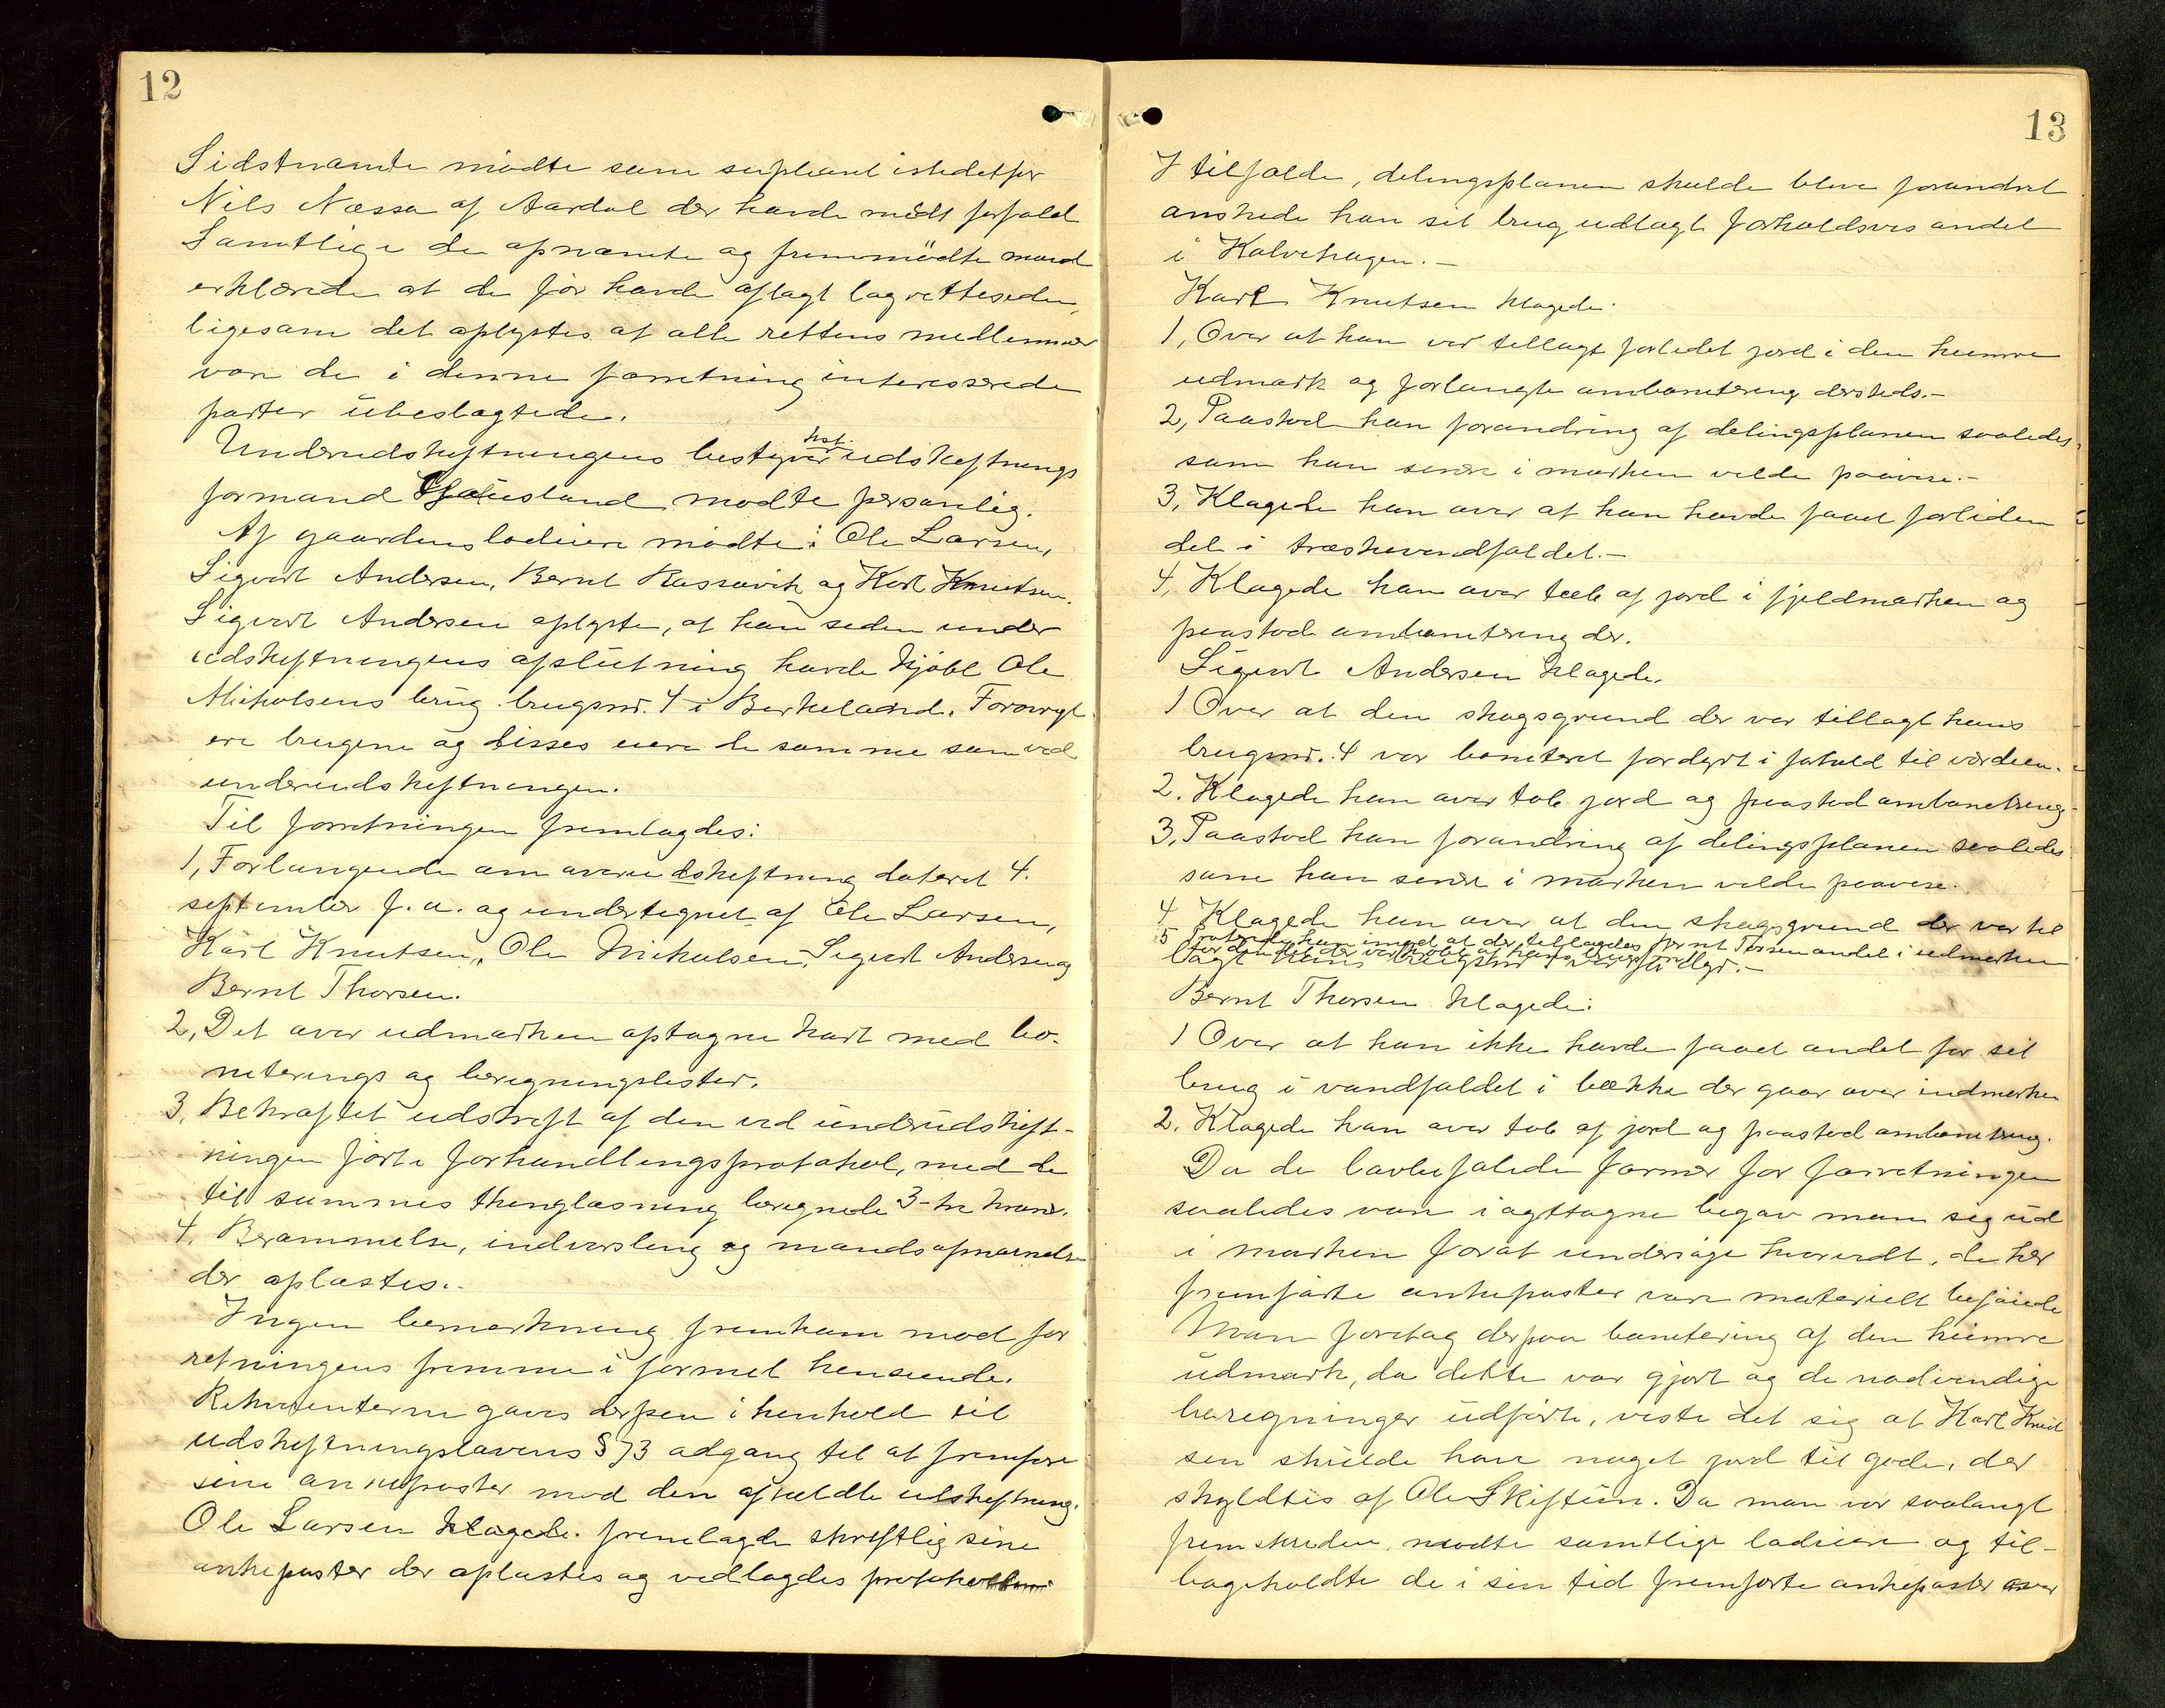 12
Sidstnævnte mødte som supleant istedetfor
Nils Næssa af Aardal der havde mødt forfald
Samtlige de opnævnte og fremmødte mænd
erklærede at de før havde aflagt lagretteseden,
ligesom det oplystes at alle rettens medlemmer
vare de i denne forretning interesserede
parter ubeslægtede.
Underudskiftningens bestyrer hst. udskiftnings
formand Tjausland mødte personlig.
Af gaardens lodeiere mødte: Ole Larsen,
Sigvart Andersen, Bernt Rassavik og Karl Knutsen.
Sigvart Andersen oplyste, at han siden under
udskiftningens afslutning havde kjøbt Ole
Mikolsens brug brugsnr. 4 i Birkeland. Forøvrigt
ere brugene og disses eiere de samme som ved
underudskiftningen.
Til forretningen fremlagdes:
1, Forlangende om overudskiftning dateret 4.
september f. a. og undertegnet af Ole Larsen,
Karl Knutsen, Ole Mikalsen, Sigurt Andersen og
Bernt Thorsen.
2, Det over udmarken optagne kart med bo-
niterings og beregningslister.
3, Bekræftet udskrift af den ved underudskift-
ningen førte forhandlingsprotokol, med de
til sammes thinglæsning beregnede 3-tre kroner.
4, Berammelse, indvarsling og mandsopnævnelse
der oplæstes.
Ingen bemerkning fremkom mod for
retningens fremme i formel henseende.
Rekvirenterne gaves derpaa i henhold til
udskiftningslovens § 73 adgang til at fremføre
sine ankeposter mod den afholdte udskiftning.
Ole Larsen klagede. fremlagde skriftlig sine
ankeposter der oplæstes og vedlagdes protokollen
13
I tilfælde, delingsplanen skulde blive forandret
ønskede han sit brug udlagt forholdsvis andel
i Kalvehagen.-
Karl Knutsen klagede:
1, Over at han var tillagt forlidet jord i den heimre
udmark og forlangte ombonitering dersteds.-
2, Paastod han forandring af delingsplanen saaledes,
som han senere i marken vilde paavise.-
3, Klagede han over at han havde faaet forliden
del i træskevandfaldet.-
4, Klagede han over tab af jord i fjeldmarken og
paastod ombonitering der.
Sigurt Andersen klagede.
1 Over at den skogsgrund der var tillagt hans
brugsnr. 4 var boniteret fordyrt i forhold til værdien.
2. Klagede han over tab jord og paastod ombonitering
3, Paastod han forandring af delingsplanen saaledes
som han senere i marken vilde paavise.
4 Klagede han over at den skogsgrund der var til
5 protesterede han imod at der tillagdes Bernt Torsen andel i udmarken
lagt hans brugsnr 1 var for dyr.-
Bernt Thorsen klagede:
1 Over at han ikke havde faaet andel for sit
brug i vandfaldet i bække der gaar over indmarken
2. Klagede han over tab af jord og paastod ombonitering.
Da de lovbefalede former for forretningen
saaledes vare iagttagne begav man sig ud
i marken forat undersøge hvorvidt, de her
fremførte ankeposter vare materielt beføiede
Man foretog derpaa bonitering af den heimre
udmark, da dette var gjort og de nødvendige
beregninger udførte, viste det sig at Karl Knut
sen skulde have noget jord til gode, der
skyldtes af Ole Skiftun. Da man var saalangt
fremskreden, mødte samtlige lodeiere og til-
bageholdte de i sin tid fremførte ankeposter over